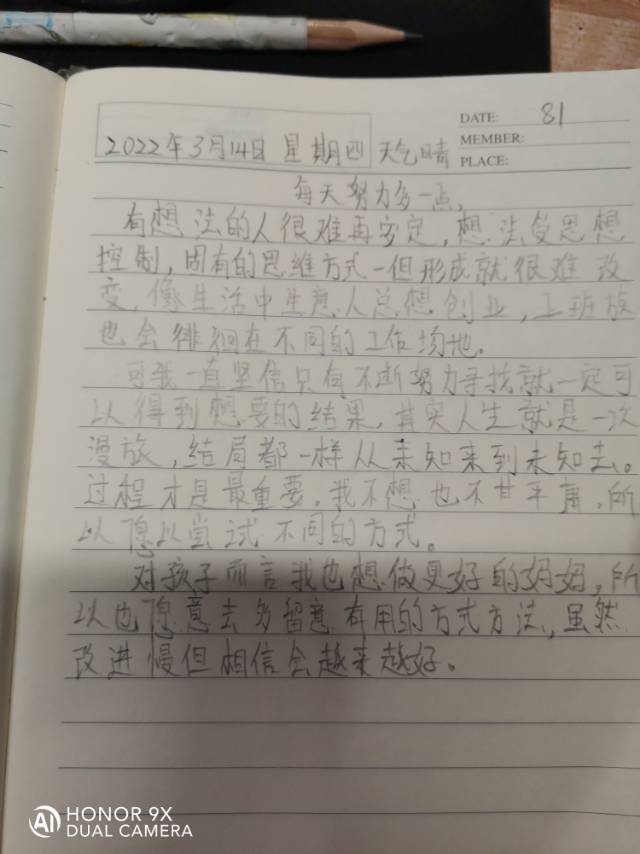 DATE: 81
2022年3月14日 星期四 天气晴
MEMBER:
PLACE:
每天努力多一点,
有想法的人很难再安定,想法受思想
控制,固有的思维方式一但形成就很难改
变,像生活中生意人总想创业,上班族
也会徘徊在不同的工作场地.
可我一直坚信只有不断努力寻找就一定可
以得到想要的结果,其实人生就是一次
漫旅,结局都一样从未知来到未知去。
过程才是最重要,我不想也不甘平庸,所
以愿以尝试不同的方式。
对孩子而言我也想做更好的妈妈,所
以也愿意去多留意有用的方式方法,虽然
改进慢但相信会越来越好。
AI HONOR 9X
DUAL CAMERA